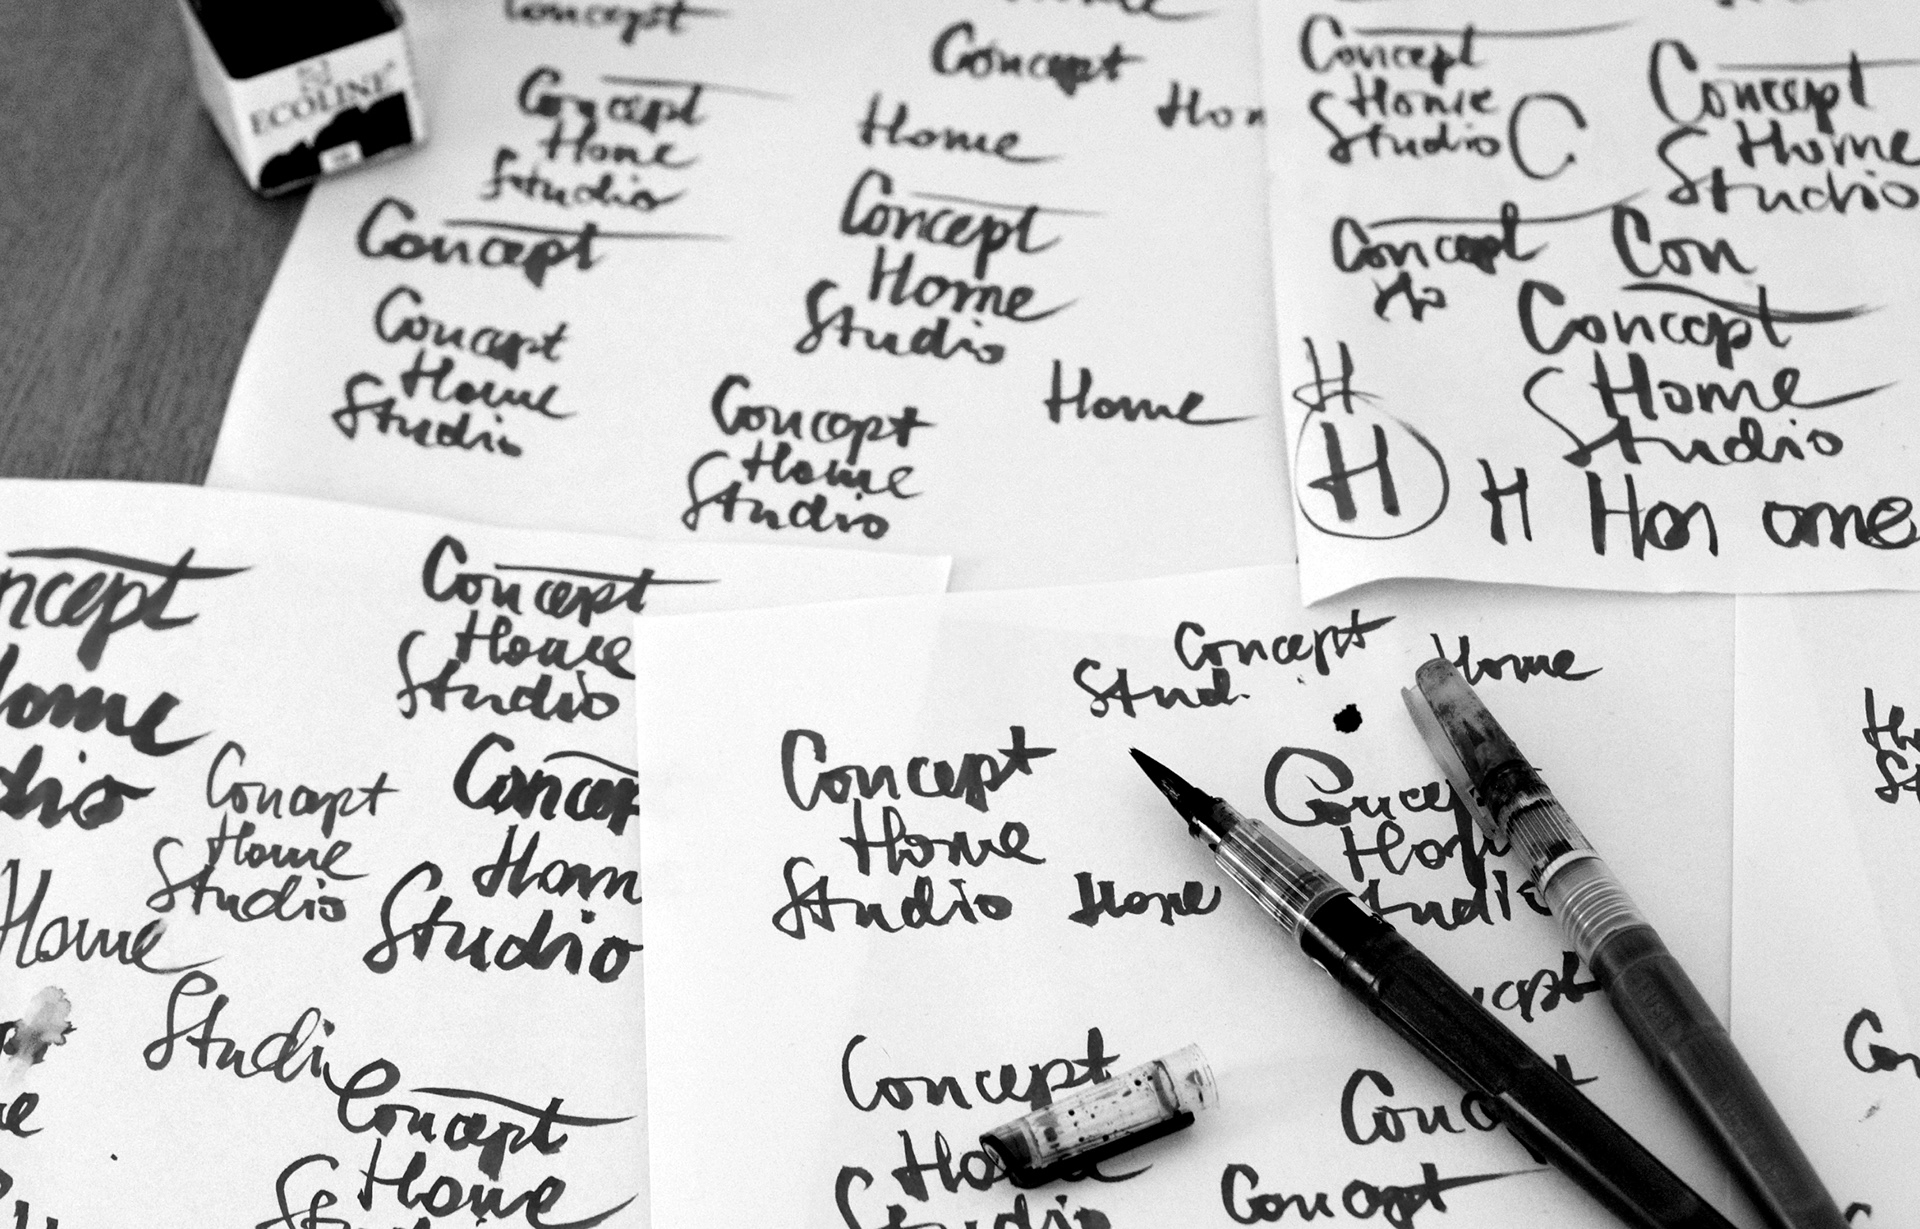 Concept
ECOLINE
Concept
Home
Studio
Concept
Concept
Home
Studio
Concept
Home
Concept
Home
Studio
Home
Concept
Home
Studio
Concept
Home
Studio
C
Concept
Home
Studio
Concept
Ho
Con
Concept
Home
Studio
H
H
H
Hon
ome
ncept
Home
dio
Concept
Home
Studio
Concept
Home
Studio
Concep
Hom
Studio
Home
Studi
Concept
Home
Concept
Home
Stud
Concept
Home
Studio
Home
Concep
Hom
Studio
cept
Concept
Ho
Studio
Conc
Concept
Con